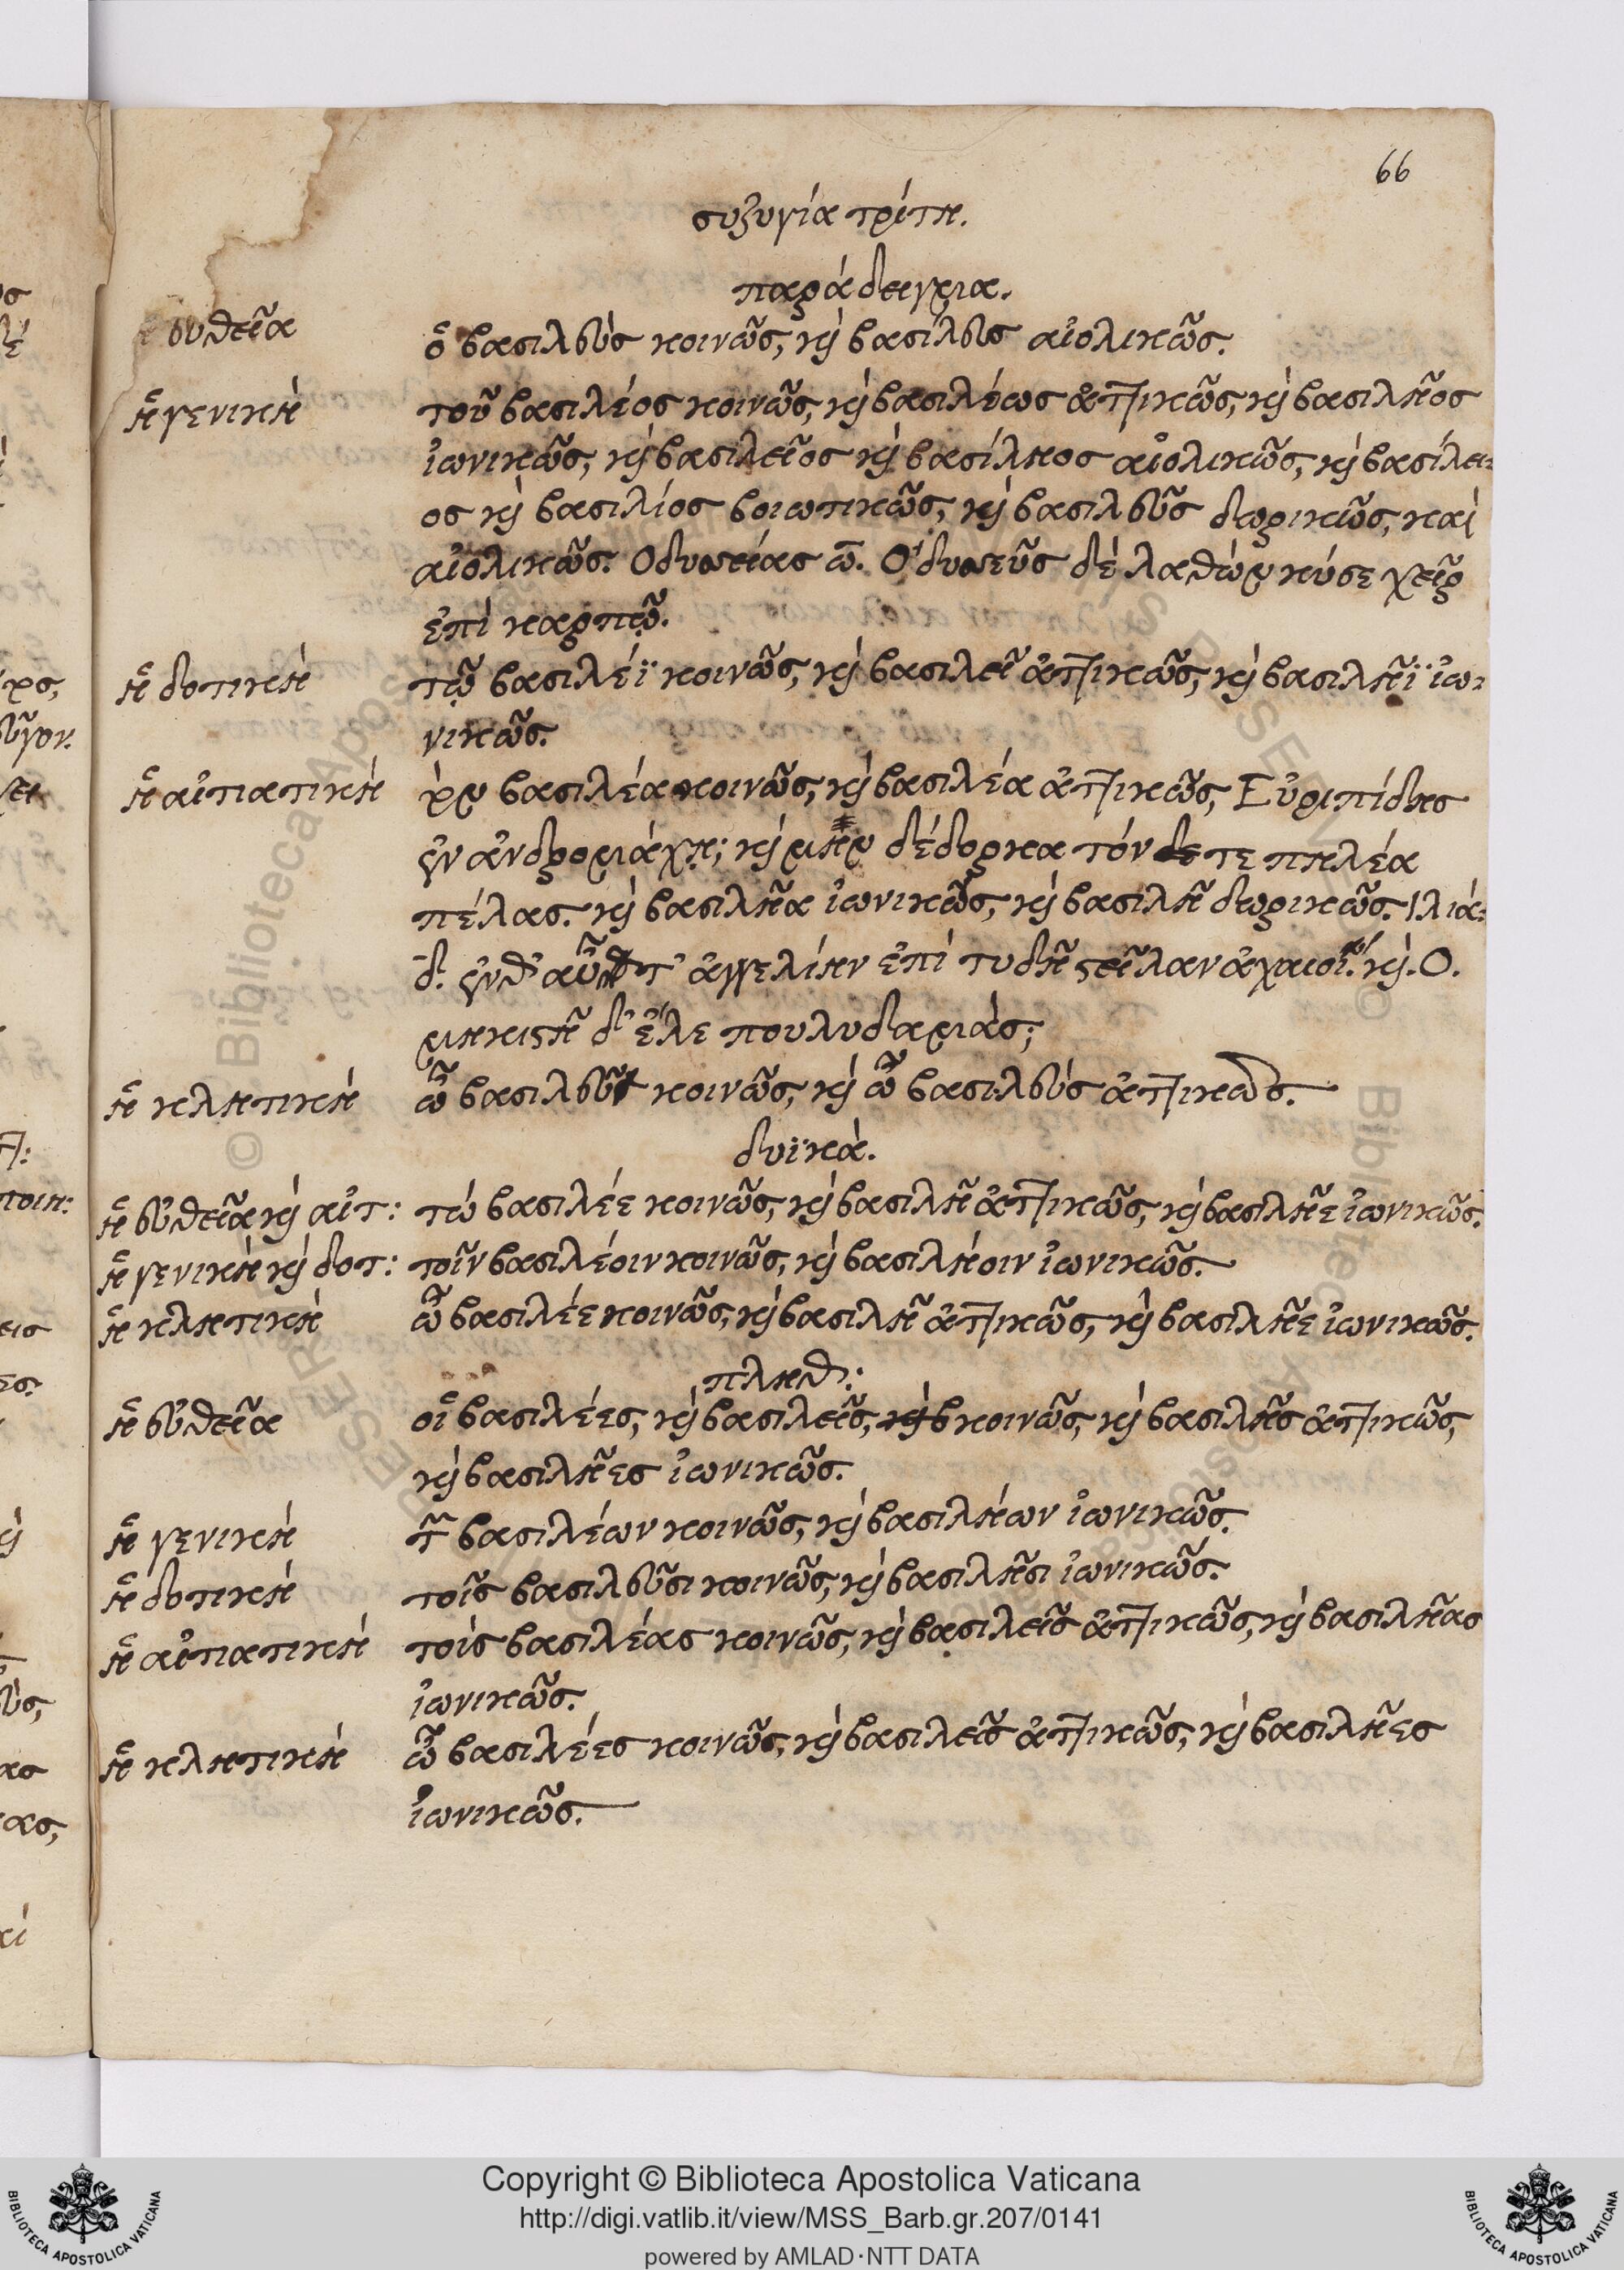 66
συζυγία τρίτη.
παράδειγμα.
εὐθεῖα ὁ βασιλεὺς κοινῶς, καὶ βασίλευς αἰολικῶς.
ἡ γενικὴ τοῦ βασιλέος κοινῶς, καὶ βασιλέως ἀττικῶς, καὶ βασιλῆος
ἰωνικῶς, καὶ βασιλεῖος καὶ βασίληος αἰολικῶς, καὶ βασίλει-
ος καὶ βασιλίος βοιωτικῶς, καὶ βασιλεῦς δωρικῶς, καὶ
αἰολικῶς. Οδυσσείας ω. Ὀδυσεῦς δὲ λαθὼν κύσε χεῖρ
ἐπὶ καρπῷ.
ἡ δοτικὴ τῷ βασιλέϊ κοινῶς, καὶ βασιλεῖ ἀττικῶς, καὶ βασιλῆϊ ἰω-
νικῶς.
ἡ αἰτιατικὴ τὸν βασιλέα κοινῶς, καὶ βασιλέα ἀττικῶς, Εὐριπίδης
ἐν ἀνδρομάχῃ; καὶ μὴν δέδορκα τόν τε πηλέα
πέλας. καὶ βασιλῆα ἰωνικῶς, καὶ βασιλῆ δωρικῶς. Ιλιά-
δ. ἔνθ' αὖτ' ἀγγελίην ἐπὶ τυδῆ στεῖλαν ἀχαιοί. καὶ. Ο.
μηκιστῆ δ' ἕλε πουλυδαμὰς;
ἡ κλητικὴ ὦ βασιλεῦ κοινῶς, καὶ ὦ βασιλεὺς ἀττικῶς.
δυϊκὰ.
ἡ εὐθεῖα καὶ αἰτ: τὼ βασιλέε κοινῶς, καὶ βασιλῆ ἀττικῶς, καὶ βασιλῆε ἰωνικῶς.
ἡ γενικὴ καὶ δοτ: τοῖν βασιλέοιν κοινῶς, καὶ βασιλήοιν ἰωνικῶς.
ἡ κλητικὴ ὦ βασιλέε κοινῶς, καὶ βασιλῆ ἀττικῶς, καὶ βασιλῆε ἰωνικῶς.
πληθ:
ἡ εὐθεῖα οἱ βασιλέες, καὶ βασιλεῖς, κοινῶς, καὶ βασιλῆς ἀττικῶς,
καὶ βασιλῆες ἰωνικῶς.
ἡ γενικὴ τῶν βασιλέων κοινῶς, καὶ βασιλήων ἰωνικῶς.
ἡ δοτικὴ τοῖς βασιλεῦσι κοινῶς, καὶ βασιλῆσι ἰωνικῶς.
ἡ αἰτιατικὴ τοὶς βασιλέας κοινῶς, καὶ βασιλεῖς ἀττικῶς, καὶ βασιλῆας
ἰωνικῶς.
ἡ κλητικὴ ὦ βασιλέες κοινῶς, καὶ βασιλεῖς ἀττικῶς, καὶ βασιλῆες
ἰωνικῶς.
Copyright © Biblioteca Apostolica Vaticana
http://digi.vatlib.it/view/MSS_Barb.gr.207/0141
powered by AMLAD·NTT DATA
BIBLIOTECA APOSTOLICA VATICANA
BIBLIOTECA APOSTOLICA VATICANA